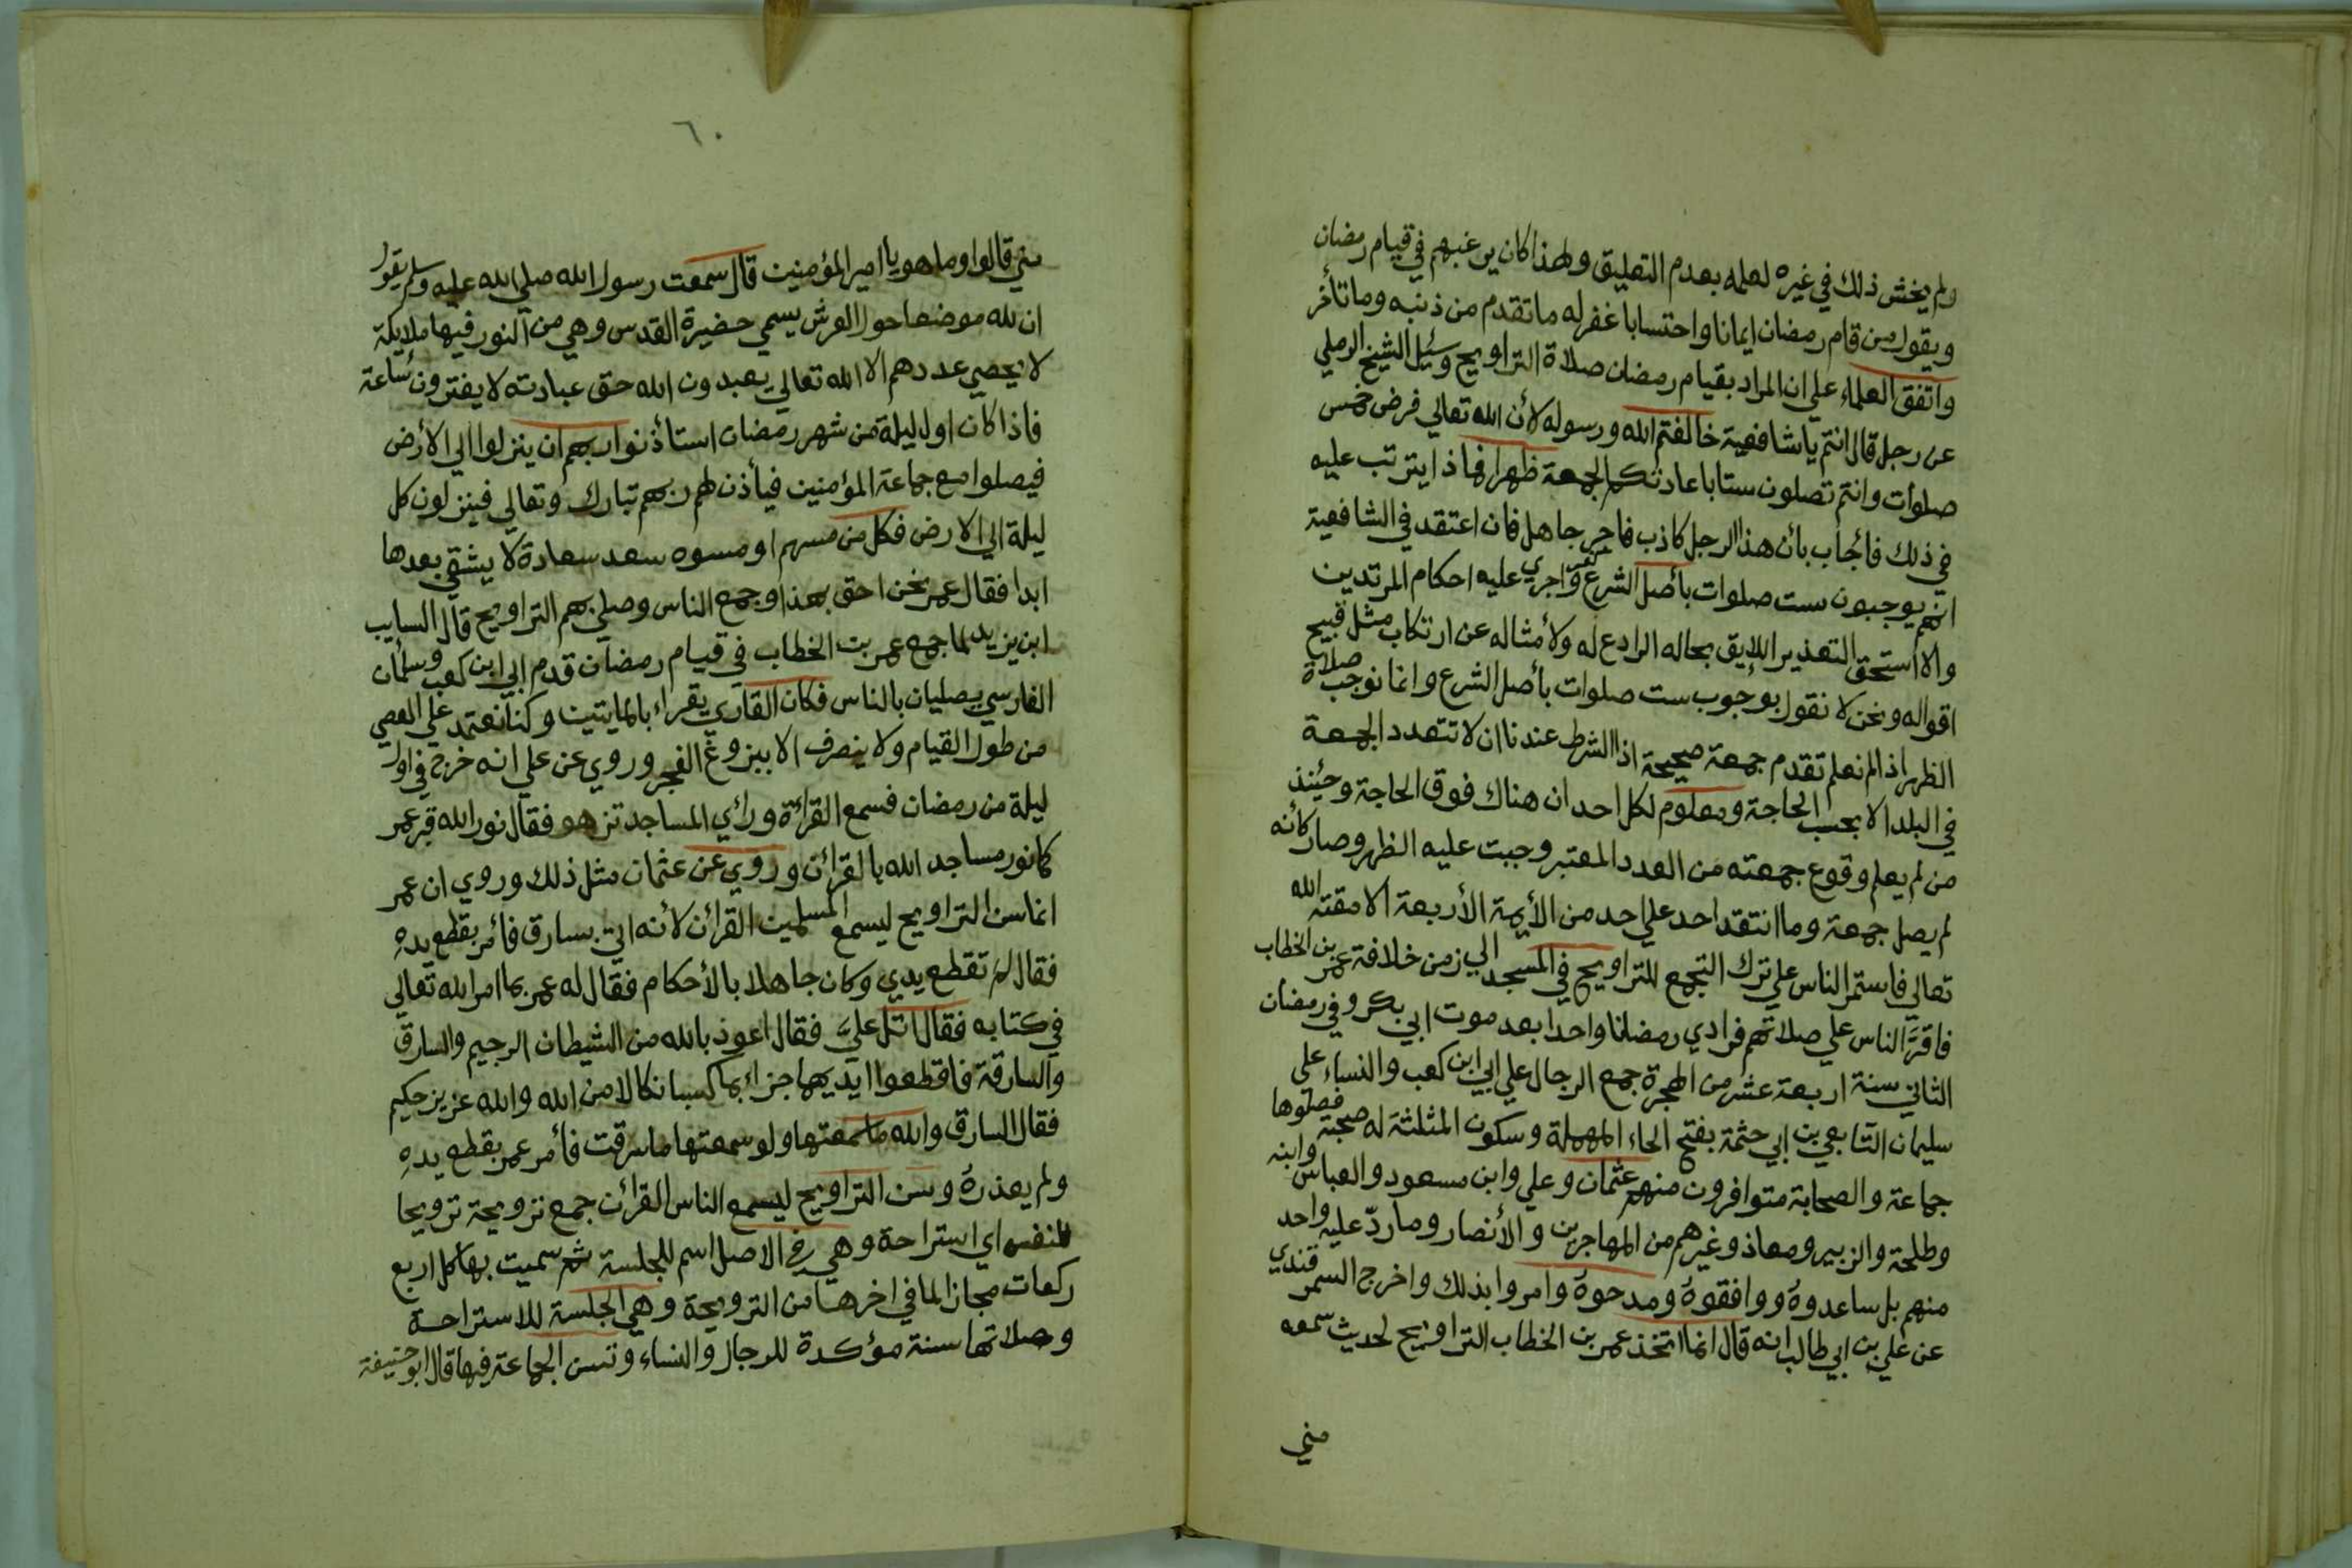 ولم يخش ذلك في غيره لعلمه بعدم التعليق ولهذا كان يرغبهم في قيام رمضان
ويقول من قام رمضان ايمانا واحتسابا غفر له ما تقدم من ذنبه وما تأخر
واتفق العلماء علي ان المراد بقيام رمضان صلاة التراويح وسئل الشيخ الرملي
عن رجل قال انتم يا شافعية خالفتم الله ورسوله لأن الله تعالي فرض خمس
صلوات وانتم تصلون ستا باعادتكم الجمعة ظهرا فماذا يترتب عليه
في ذلك فأجاب بأن هذا الرجل كاذب فاجر جاهل فان اعتقد في الشافعية
انهم يوجبون ست صلوات بأصل الشرع كفر واجري عليه احكام المرتدين
والا استحق التعذير اللايق بحاله الرادع له ولأمثاله عن ارتكاب مثل قبيح
اقواله ونحن لا نقول بوجوب ست صلوات بأصل الشرع وانما نوجب صلاة
الظهر اذا لم نعلم تقدم جمعة صحيحة اذا الشرط عندنا ان لا تتعدد الجمعة
في البلد الا بحسب الحاجة ومعلوم لكل احد ان هناك فوق الحاجة وحينئذ
من لم يعلم وقوع جمعته من العدد المعتبر وجبت عليه الظهر وصار كأنه
لم يصل جمعة وما انتقد احد علي احد من الأيمة الأربعة الا مقته الله
تعالي فاستمر الناس علي ترك التجمع للتراويح في المسجد الي زمن خلافة عمر بن الخطاب
فاقرّ الناس علي صلاتهم فرادي رمضانا واحدا بعد موت ابي بكر وفي رمضان
الثاني سنة اربعة عشر من الهجرة جمع الرجال علي ابي ابن كعب والنساء على
سليمان التابعي بن ابي حثمة بفتح الحاء المهملة وسكون المثلثة له صحبة فصلوها
جماعة والصحابة متوافرون منهم عثمان وعلي وابن مسعود والعباس وابنه
وطلحة والزبير ومعاذ وغيرهم من المهاجرين والأنصار وما ردّ عليه واحد
منهم بل ساعدوه ووافقوه ومدحوه وامروا بذلك واخرج السمرقندي
عن علي بن ابي طالب انه قال انما اتخذ عمر بن الخطاب التراويح لحديث سمعه
مني
٦٠
مني قالوا وما هو يا امير المؤمنين قال سمعت رسول الله صلي الله عليه وسلم يقول
ان لله موضعا حول العرش يسمي حضيرة القدس وهي من النور فيها ملايكة
لا يحصي عددهم الا الله تعالي يعبدون الله حق عبادته لا يفترون ساعة
فاذا كان اول ليلة من شهر رمضان استأذنوا ربهم ان ينزلوا الي الأرض
فيصلوا مع جماعة المؤمنين فيأذن لهم ربهم تبارك وتعالي فينزلون كل
ليلة الي الارض فكل من مسهم او مسوه سعد سعادة لا يشقي بعدها
ابدا فقال عمر نحن احق بهذا وجمع الناس وصلي بهم التراويح قال السايب
ابن يزيد لما جمع عمر بن الخطاب في قيام رمضان قدم ابي ابن كعب وسلمان
الفارسي يصليان بالناس فكان القاري يقراء بالمايتين وكنا نعتمد علي العصي
من طول القيام ولا ينصرف الا ببزوغ الفجر وروي عن علي انه خرج في اول
ليلة من رمضان فسمع القرأة ورأي المساجد تزهو فقال نور الله قبر عمر
كما نور مساجد الله بالقرأن وروي عن عثمان مثل ذلك وروي ان عمر
انما سن التراويح ليسمع المسلمين القرأن لأنه اتي بسارق فأمر بقطع يده
فقال لم تقطع يدي وكان جاهلا بالأحكام فقال له عمر بما امر الله تعالي
في كتابه فقال اتل عليّ فقال اعوذ بالله من الشيطان الرجيم والسارق
والسارقة فاقطعوا ايديهما جزاء بما كسبا نكالا من الله والله عزيز حكيم
فقال السارق والله ما سمعتها ولو سمعتها ما سرقت فأمر عمر بقطع يده
ولم يعذره وسن التراويح ليسمع الناس القرأن جمع ترويحة ترويحا
للنفس اي استراحة وهي في الاصل اسم للجلسة ثم سميت بها كل اربع
ركعات مجازا لما في اخرها من الترويحة وهي الجلسة للاستراحة
وصلاتها سنة مؤكدة للرجال والنساء وتسن الجماعة فيها قال ابو حنيفة